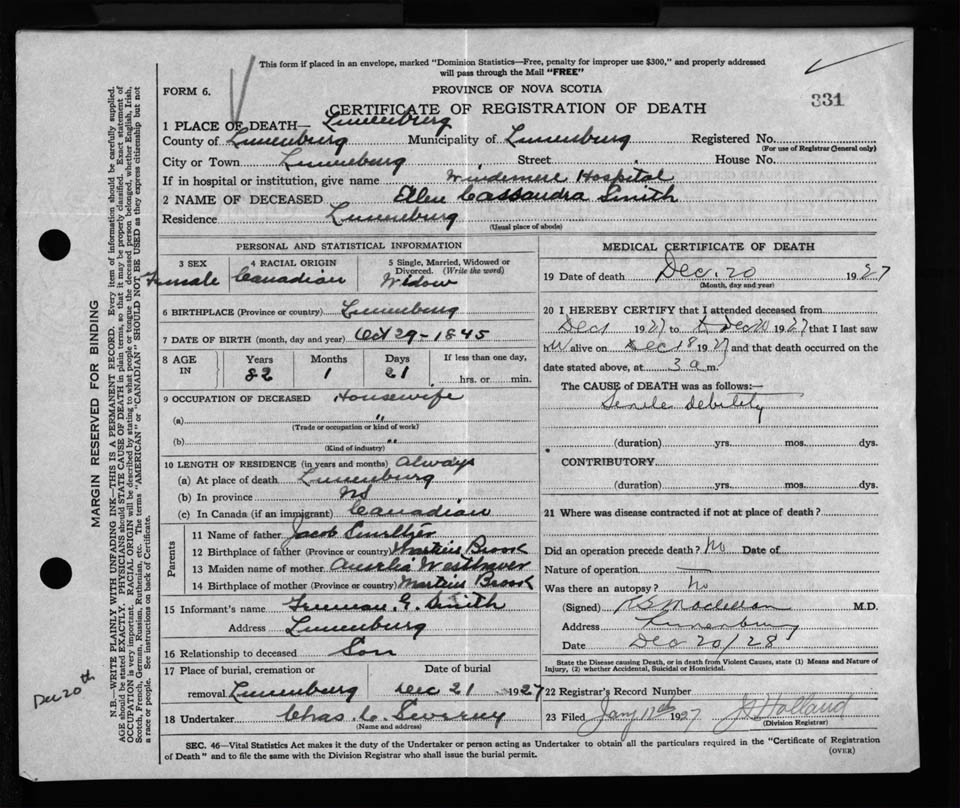 This form if placed in an envelope, marked "Dominion Statistics—Free, penalty for improper use $300," and properly addressed
will pass through the Mail "FREE"
FORM 6.
PROVINCE OF NOVA SCOTIA
331
CERTIFICATE OF REGISTRATION OF DEATH
1 PLACE OF DEATH— Lunenburg
County of Lunenburg Municipality of Lunenburg Registered No.
(For use of Registrar General only)
City or Town Lunenburg Street House No.
If in hospital or institution, give name Windemere Hospital
2 NAME OF DECEASED Cassandra Smith
Residence Lunenburg
(Usual place of abode)
PERSONAL AND STATISTICAL INFORMATION
3 SEX 4 RACIAL ORIGIN 5 Single, Married, Widowed or
Divorced. (Write the word)
Female Canadian Widow
6 BIRTHPLACE (Province or country) Lunenburg
7 DATE OF BIRTH (month, day and year) Oct 29-1845
8 AGE IN Years Months Days If less than one day,
82 1 21 hrs. or min.
9 OCCUPATION OF DECEASED Housewife
(a) "
(Trade or occupation or kind of work)
(b) "
(Kind of industry)
10 LENGTH OF RESIDENCE (in years and months) Always
(a) At place of death Lunenburg
(b) In province NS
(c) In Canada (if an immigrant) Canadian
Parents
11 Name of father Jacob Smeltzer
12 Birthplace of father (Province or country) Martins Brook
13 Maiden name of mother Westhaver
14 Birthplace of mother (Province or country) Martins Brook
15 Informant's name Freeman G. Smith
Address Lunenburg
16 Relationship to deceased Son
17 Place of burial, cremation or Date of burial
removal Lunenburg Dec 21 1927
18 Undertaker Chas. C.
(Name and address)
MEDICAL CERTIFICATE OF DEATH
19 Date of death Dec. 20 1927
(Month, day and year)
20 I HEREBY CERTIFY that I attended deceased from
Dec 1 1927 to Dec 20 1927 that I last saw
her alive on Dec 18 1927 and that death occurred on the
date stated above, at 3 a m.
The CAUSE of DEATH was as follows:—
Senile debility
(duration) yrs. mos. dys.
CONTRIBUTORY
(duration) yrs. mos. dys.
21 Where was disease contracted if not at place of death?
Did an operation precede death? No Date of
Nature of operation —
Was there an autopsy? No
(Signed) M.D.
Address Lunenburg
Date Dec 20/28
State the Disease causing Death, or in death from Violent Causes, state (1) Means and Nature of
Injury, (2) whether Accidental, Suicidal or Homicidal.
22 Registrar's Record Number
23 Filed Jany 12th 1927 Holland
(Division Registrar)
SEC. 46—Vital Statistics Act makes it the duty of the Undertaker or person acting as Undertaker to obtain all the particulars required in the "Certificate of Registration
of Death" and to file the same with the Division Registrar who shall issue the burial permit.
(OVER)
MARGIN RESERVED FOR BINDING
N.B.—WRITE PLAINLY WITH UNFADING INK—THIS IS A PERMANENT RECORD. Every item of information should be carefully supplied.
AGE should be stated EXACTLY. PHYSICIANS should STATE CAUSE OF DEATH in plain terms, so that it may be properly classified. Exact statement of
OCCUPATION is very important. RACIAL ORIGIN will be described by stating to what people or tongue the deceased person belonged, whether English, Irish,
Scotch, French, German, Russian, Ruthenian, etc. The terms "AMERICAN" or "CANADIAN" SHOULD NOT BE USED as they express citizenship but not
a race or people. See instructions on back of Certificate.
Dec 20th